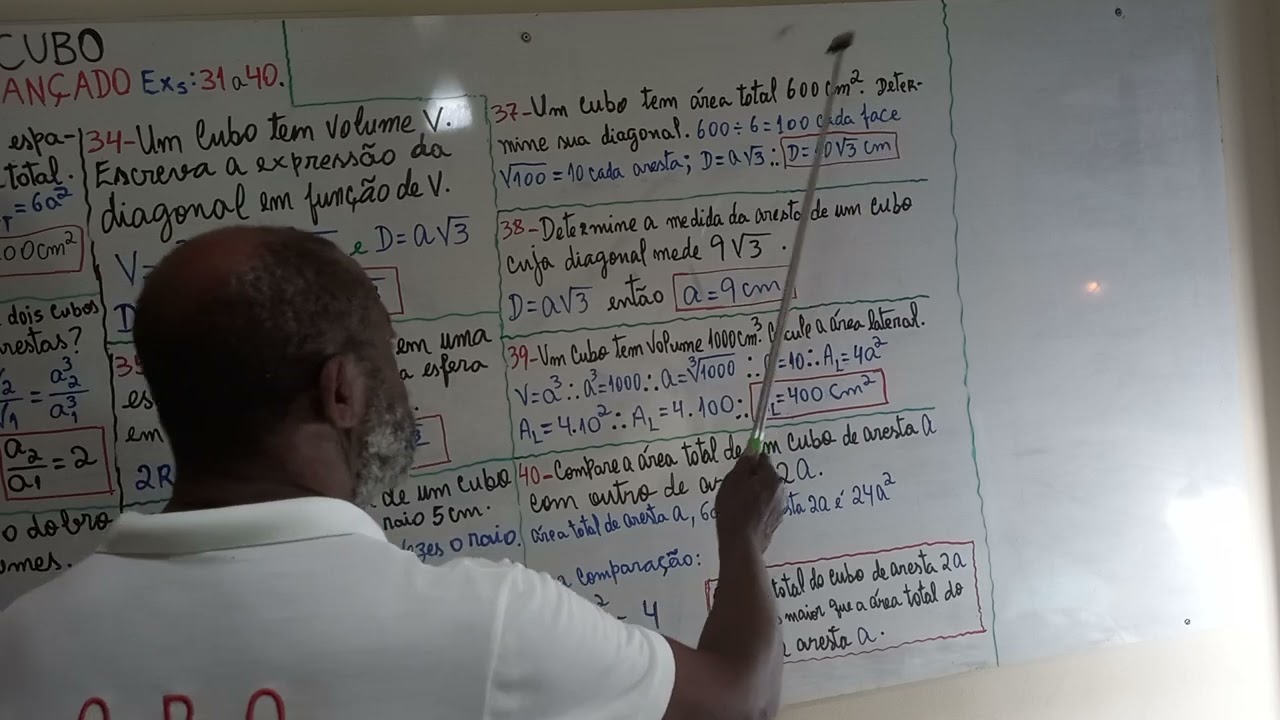 CUBO
ANÇADO Exs: 31 a 40.
espa-
total.
T=6a²
00cm²
dois cubos
restas?
= a₂³/a₁³
a₂/a₁ = 2
o dobro
umes.
34-Um Cubo tem volume V.
Escreva a expressão da
diagonal em função de V.
V= e D=a√3
D
em uma
a esfera
es
em
2R
de um cubo
raio 5cm.
o raio.
37-Um Cubo tem área total 600cm². Deter-
mine sua diagonal. 600÷6=100 cada face
√100 = 10 cada aresta; D=a√3 ∴ D=10√3 cm
38-Determine a medida da aresta de um cubo
cuja diagonal mede 9√3.
D=a√3 então a=9cm
39-Um Cubo tem Volume 1000cm³. cule a área lateral.
V=a³ ∴ a³=1000 ∴ a=∛1000 ∴ =10 ∴ AL=4a²
AL=4.10² ∴ AL=4.100 ∴ L=400 cm²
40-Compare a área total de um Cubo de aresta a
com outro de 2a.
área total de aresta a, 2a é 24a²
comparação:
4
total do cubo de aresta 2a
maior que a área total do
aresta a.